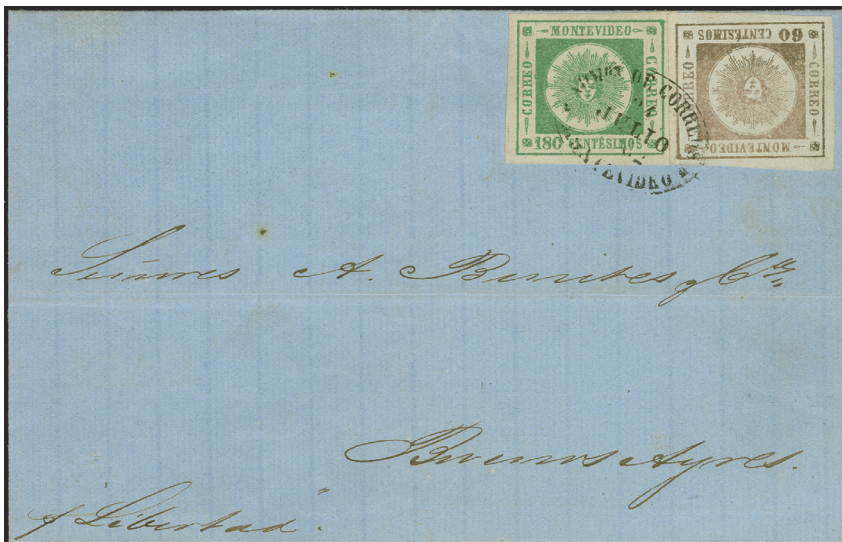 MONTEVIDEO
CORREO
CORREO
180 CENTÉSIMOS
60 CENTÉSIMOS
CORREO
CORREO
MONTEVIDEO
DE CORREOS
JULIO
MONTEVIDEO
Señores A. Benites y Cia
Buenos Ayres.
p "Libertad".